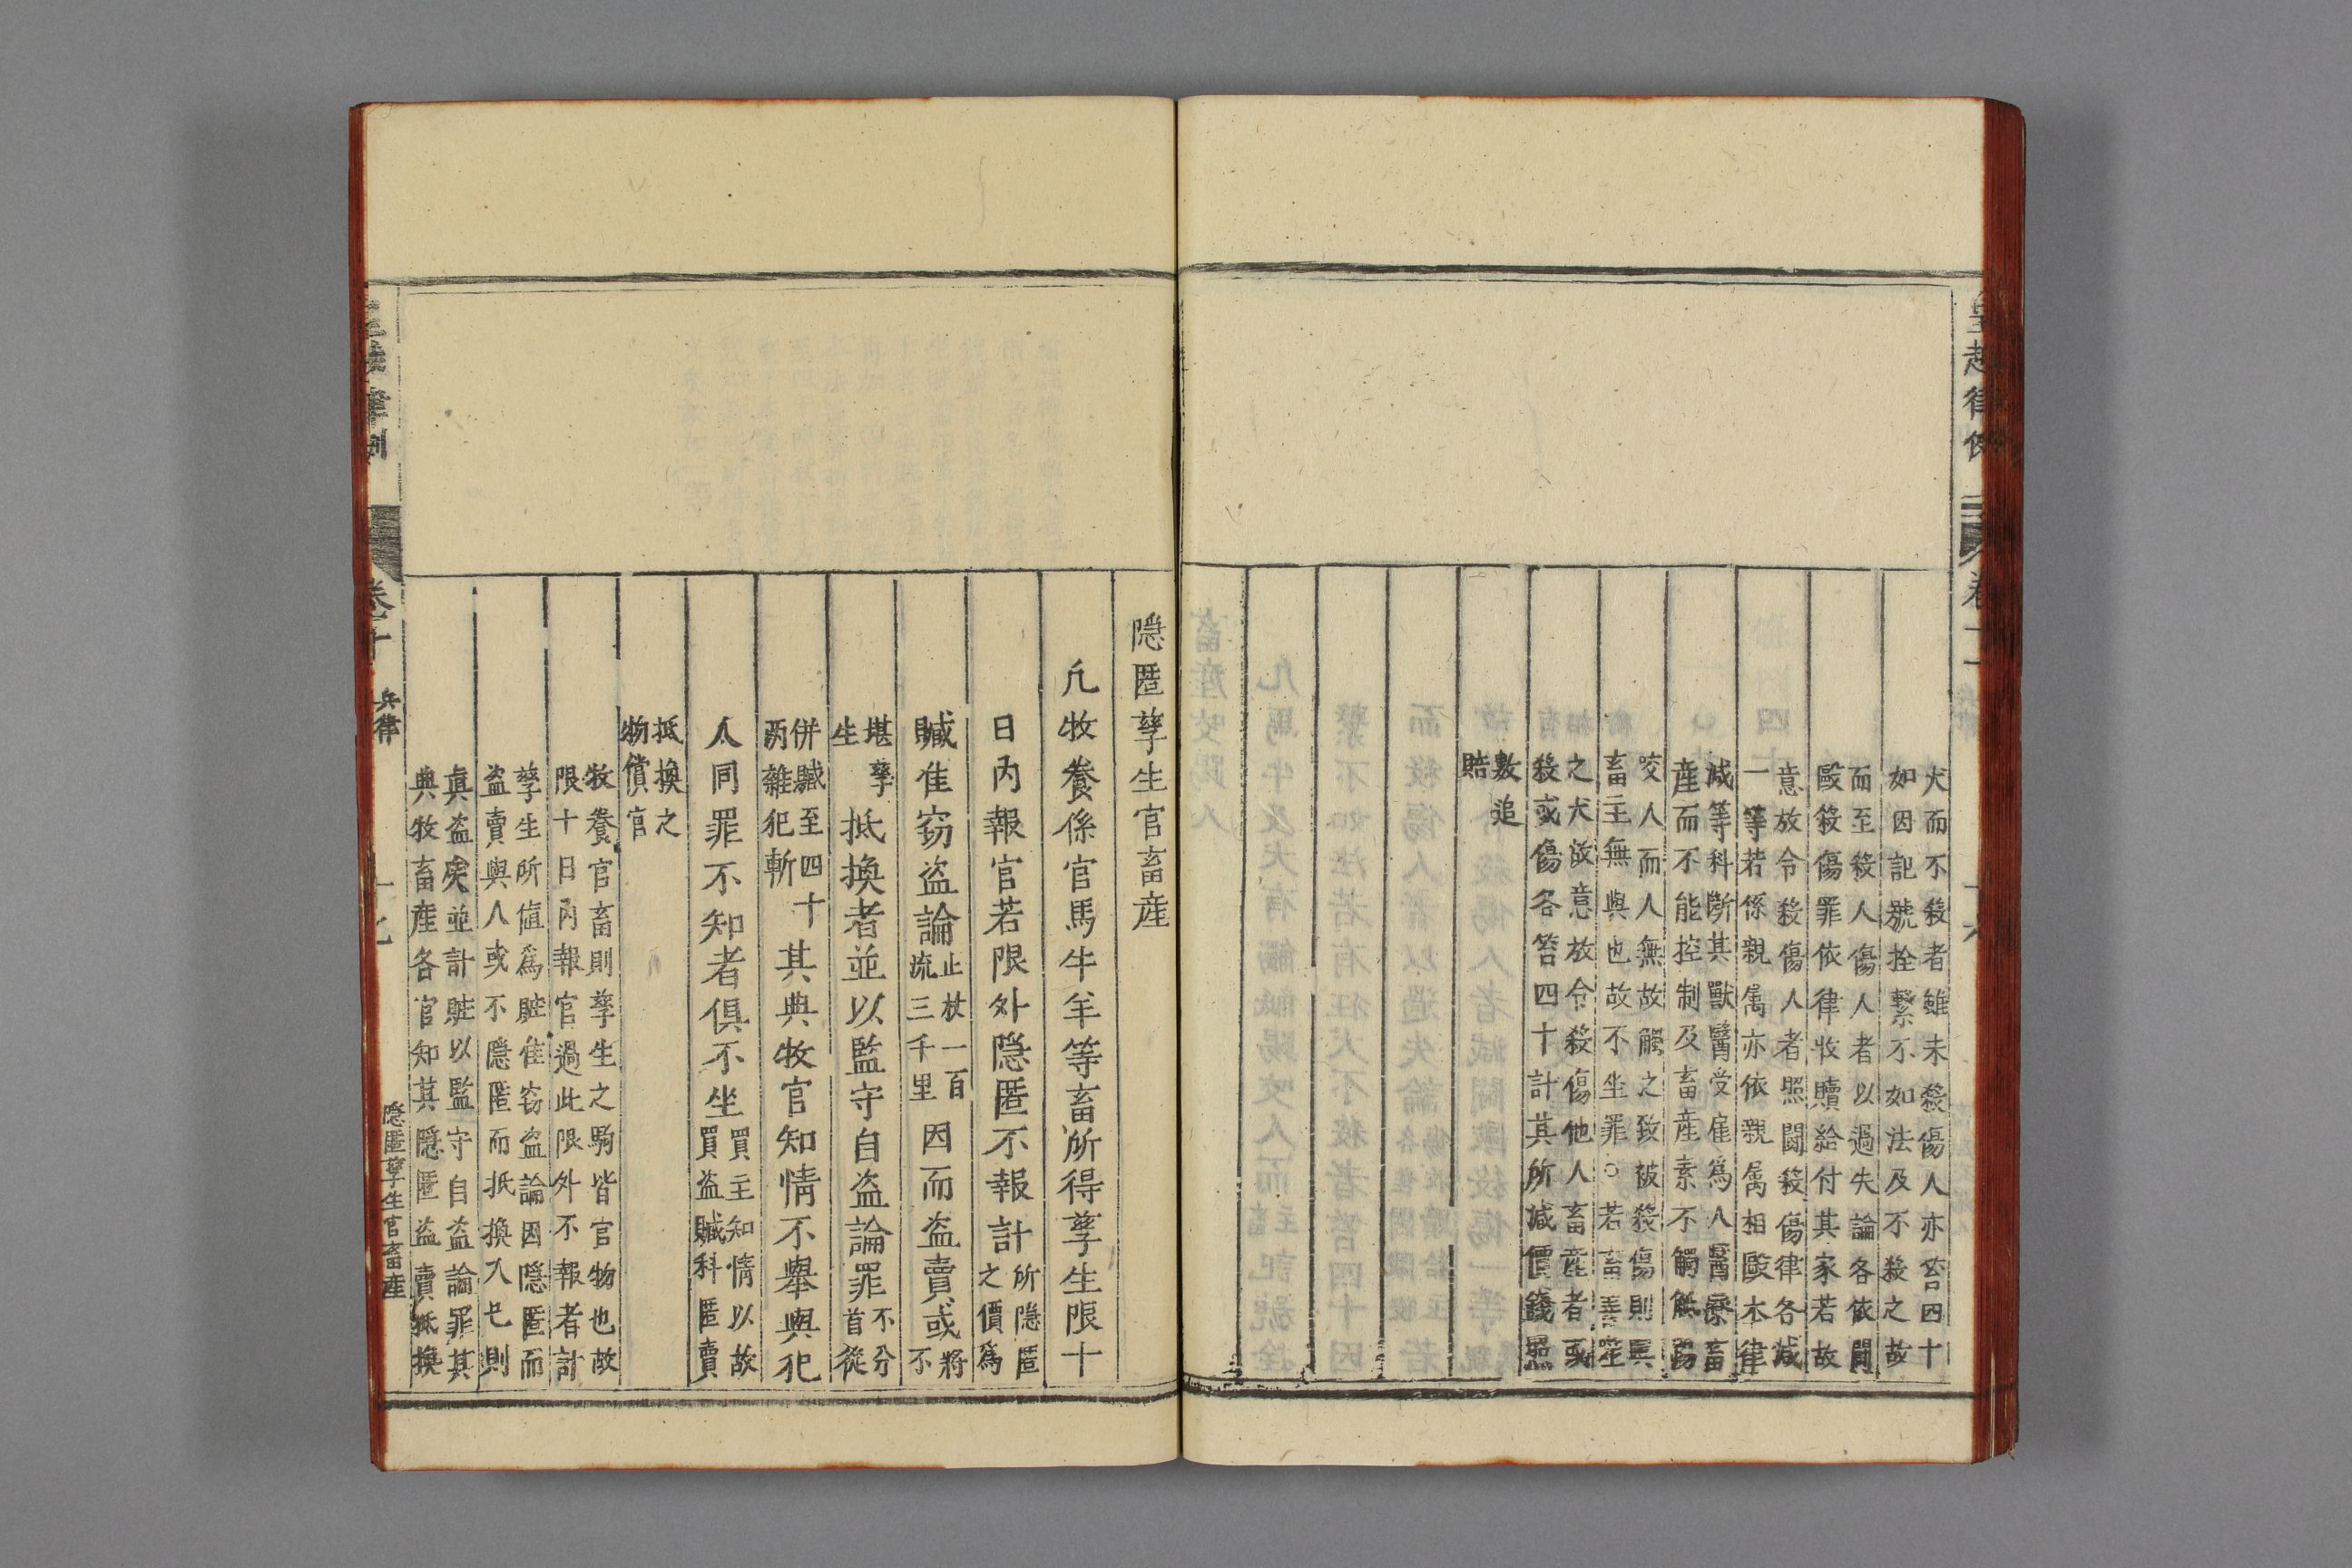 皇越律例
犬而不殺者雖未殺傷人亦笞四十
如因記號拴繫不如法及不殺之故
而至殺人傷人者以過失論各依鬪
毆殺傷罪依律收贖給付其家若故
意放令殺傷人者照鬪殺傷律各減
一等若係親属亦依親属相毆本律
減等科斷其獸醫受雇爲人醫療畜
産而不能控制及畜産素不觸觝踢
咬人而人無故觸之致被殺傷則與
畜主無與也故不坐罪○若畜主
之犬故意放令殺傷他人畜産者或
殺或傷各笞四十計其所减價錢照
數追
賠
隠匿孳生官畜産
凡牧養係官馬牛羊等畜所得孳生限十
日内報官若限外隠匿不報計所隠匿之價爲
贓准窃盗論止杖一百流三千里因而盗賣或將不
堪孳生抵換者並以監守自盗論罪不分首從
併贓至四十两雜犯斬其典牧官知情不舉與犯
人同罪不知者俱不坐買主知情以故買盗贓科匿賣
抵換之
物償官
牧養官畜則孳生之駒皆官物也故
限十日内報官過此限外不報者計
孳生所值爲賍准窃盗論因隠匿而
盗賣與人或不隠匿而抵換入已則
真盗矣並計賍以監守自盗論罪其
典牧畜産各官知其隠匿盗賣抵換
卷十
兵律
隠匿孳生官畜産